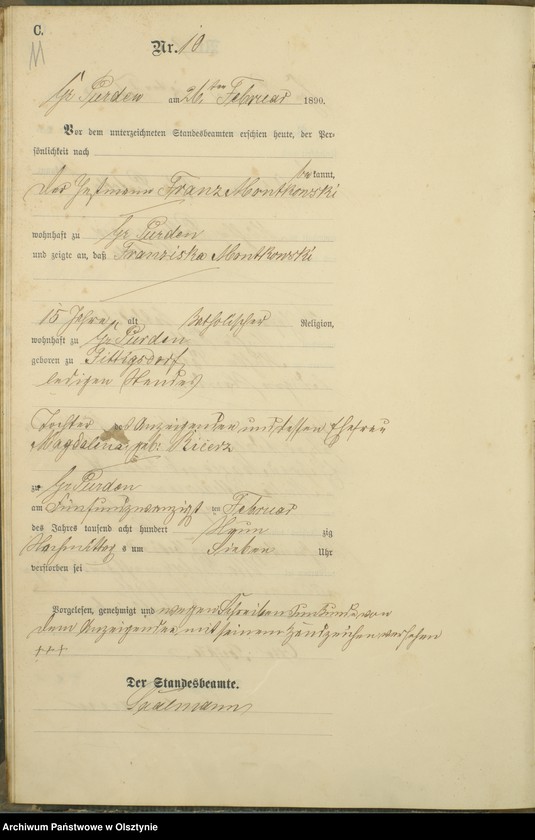 C.
Nr. 10
Gr Purden am 26ten Februar 1890.
Vor dem unterzeichneten Standesbeamten erschien heute, der Per-
sönlichkeit nach
bekannt,
Der Franz Montkowski
wohnhaft zu Gr Purden
und zeigte an, daß Franziska Montkowski
15 Jahre alt katholischer Religion,
wohnhaft zu Gr Purden
geboren zu
ledigen Standes
Tochter des Anzeigenden und dessen Ehefrau
Magdalina geb:
zu Gr Purden
am Fünfundzwanzigst en Februar
des Jahres tausend acht hundert Neun zig
Nachmittag s um Sieben Uhr
verstorben sei
Vorgelesen, genehmigt und wegen Schreibensunkunde von
dem Anzeigenden mit seinem Handzeichen versehen
+++
Der Standesbeamte.
Archiwum Państwowe w Olsztynie